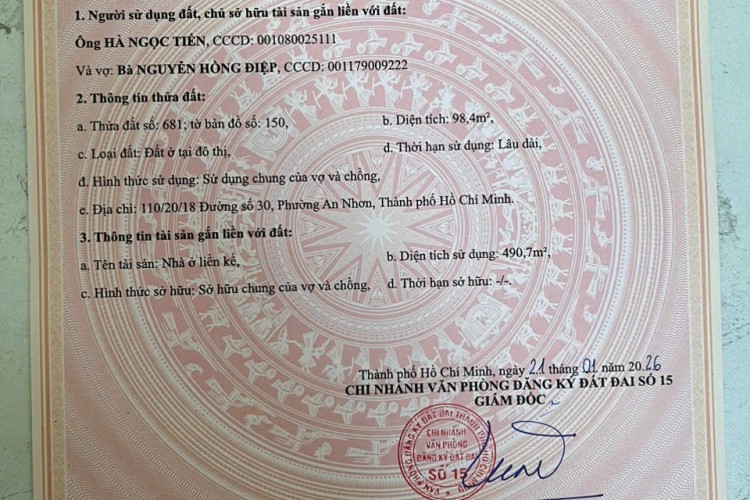 1. Người sử dụng đất, chủ sở hữu tài sản gắn liền với đất:
Ông HÀ NGỌC TIẾN, CCCD: 001080025111
Và vợ: Bà NGUYỄN HỒNG ĐIỆP, CCCD: 001179009222
2. Thông tin thửa đất:
a. Thửa đất số: 681; tờ bản đồ số: 150, b. Diện tích: 98,4m²,
c. Loại đất: Đất ở tại đô thị, d. Thời hạn sử dụng: Lâu dài,
đ. Hình thức sử dụng: Sử dụng chung của vợ và chồng,
e. Địa chỉ: 110/20/18 Đường số 30, Phường An Nhơn, Thành phố Hồ Chí Minh.
3. Thông tin tài sản gắn liền với đất:
a. Tên tài sản: Nhà ở liên kế, b. Diện tích sử dụng: 490,7m²,
c. Hình thức sở hữu: Sở hữu chung của vợ và chồng, d. Thời hạn sở hữu: -/-.
Thành phố Hồ Chí Minh, ngày 21 tháng 01 năm 2026
CHI NHÁNH VĂN PHÒNG ĐĂNG KÝ ĐẤT ĐAI SỐ 15
GIÁM ĐỐC
CHI NHÁNH
VĂN PHÒNG
ĐĂNG KÝ ĐẤT ĐAI
SỐ 15